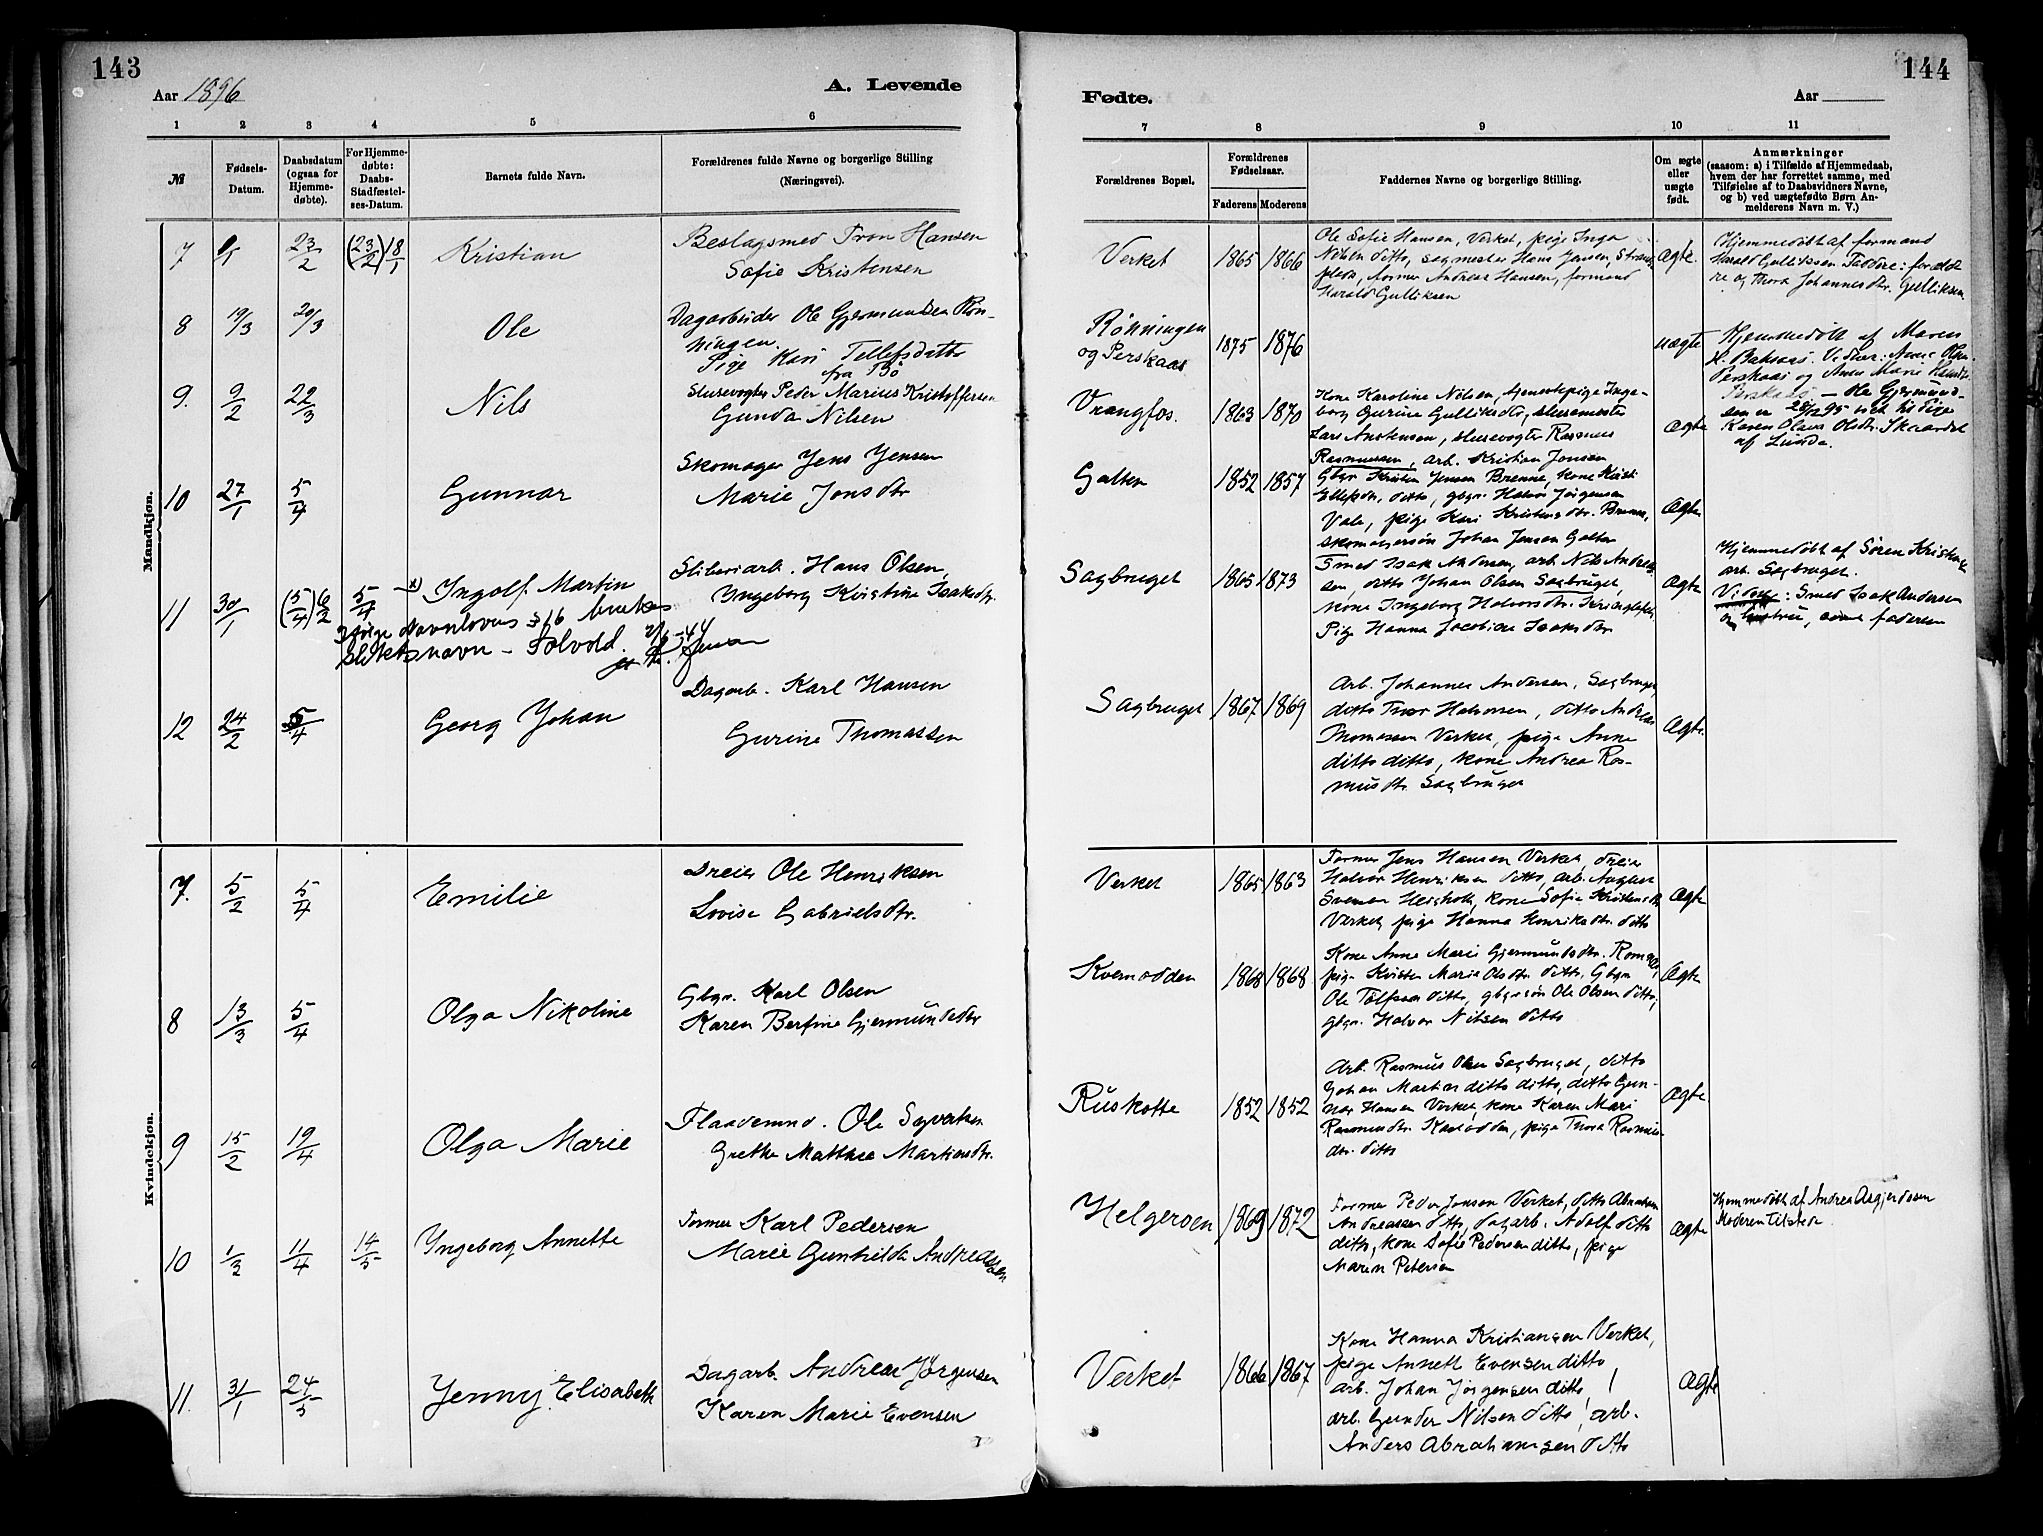 143
Aar 1896
A. Levende
1 2 3 4 5 6
№
Fødsels-
Datum.
Daabsdatum
(ogsaa for
Hjemme-
døbte).
For Hjemme-
døbte:
Daabs-
Stadfæstel-
ses-Datum.
Barnets fulde Navn.
Forældrenes fulde Navne og borgerlige Stilling
(Næringsvei).
Mandkjøn.
7 23/2 (23/2) 18/1 Kristian
Beslagsmed Tron Hansen
Sofie Kristensen
8 19/3 20/3 Ole
Dagarbeider Ole Gjermundsen Røn-
ningen.
Pige Kari Tellefsdatter
fra Bø
9. 9/2 22/3 Nils
Slusevogter Peder Marius Kristoffersen
Gunda Nilsen
10 27/1 5/4 Gunnar
Skomager Jens Jensen
Marie Jonsdtr
11 30/1 (5/4) 6/2 5/4 x) Ingolf Martin
Sliberiarb. Hans Olsen,
Ingeborg Kristine Isaksdtr.
Ifølge Navnlovens § 16 brukes
slektsnavn - Solvold.
12 24/2 5/4 Georg Johan
Dagarb. Karl Hansen
Gurine Thomassen
Kvindekjøn.
7. 5/2 5/4 Emilie
Dreier Ole Henriksen
Lovise Gabrielsdtr.
8 13/3 5/4 Olga Nikoline
Gbgr. Karl Olsen
Karen Bertine Gjermundsdtr
9 15/2 19/4 Olga Marie
Flaademnd. Ole Syvertsen
Grethe Mathea Martensdtr.
10 1/3 11/4 14/5 Ingeborg Annette
Former Karl Pedersen
Marie Gunhilda Andreassen
11. 31/1 24/5 Jenny Elisabeth
Dagarb. Andreas Jørgensen
Karen Marie Evensen
144
Fødte.
Aar
7 8 9 10 11
Forældrenes Bopæl.
Forældrenes
Fødselsaar.
Faderens Moderens
Faddernes Navne og borgerlige Stilling.
Om ægte
eller
uægte
født.
Anmærkninger
(saasom: a) i Tilfælde af Hjemmedaab,
hvem der har forrettet samme, med
Tilføielse af to Daabsvidners Navne,
og b) ved uægtefødte Børn An-
melderens Navn m. V.)
Verket 1865 1866
Ole Sofie Hansen, Verket, pige Inga
Nilsen ditto, sagmester Hans Jensen, Strand,
former Andreas Hansen, formand
Harald Gulliksen
Ægte.
Hjemmedøbt af formand
Harald Gulliksen Faddere: foreldre
re og Thora Johannesdtr. Gulliksen
Rønningen
og Perskaas
1875 1876
uægte
Hjemmedøbt af Maren
H. Baksaas. Vidner: Anne Olsen
Perskaas og Anne Marie
Perskaas — Ole Gjermund-
sen er
Karen Olava Olsdtr.
af Lunde.
Vrangfos. 1863 1870
Kone Karoline Nilsen, tjenestepige Inge-
borg Gurine Gulliksdtr, slusemester
Lars Austensen, slusevogter Rasmus
Rasmussen, arb. Kristian Jonsen
Ægte
Galten 1852 1857
Gbgr Kristen Jensen Brenne, kone Kirsti
Ellefsdtr, ditto, gbgr. Halvor Jørgensen
Vale, pige Kari Kristensdtr. Brenne,
skomagersøn Johan Jensen Galten
Ægte
Sagbruget 1865 1873
Smed Isak Andersen, arb. Nils Andreas-
sen, ditto Johan Olsen Sagbruget,
kone Ingeborg Halvorsdtr.
Pige Hanna Jacobine Isaksdtr
Ægte
Hjemmedøbt af Søren Kristensen
arb. Sagbruget.
Vidner: Smed Isak Andersen
og hustru, samt faderen
Sagbruget 1867 1869
Arb. Johannes Andersen, Sagbruget
ditto Thor Halvorsen, ditto Andreas
Thomassen Verket, pige Anne
ditto ditto, kone Andrea Ras-
musdtr. Sagbruget
Ægte.
Verket 1865 1863
Former Jens Hansen Verket, dreier
Halvor Henriksen ditto, arb. August
Svensen Heisholt, kone Sofie Kristensdtr
Verket, pige Hanna Henriksdtr. ditto
Ægte
Kvernodden 1868 1868
Kone Anne Marie Gjermundsdtr. Romnes,
pige Kristen Marie Olsdtr. ditto, Gbgr.
Ole Tolfsen ditto, gbgr.søn Ole Olsen ditto,
gbgr. Halvor Nilsen ditto
Ægte
Ruskotte 1852 1852
Arb. Rasmus Olsen Sagbruget, ditto
Johan Martin ditto ditto, ditto Gun-
nar Hansen Verket, kone Karen Mari
Rasmusdtr. Kasodden, pige Thora Rasmus-
dtr. ditto
Ægte.
Helgeroen 1869 1872
Former Peder Jonsen Verket, ditto Abraham
Andreassen ditto, dagarb. Adolf ditto
ditto, kone Sofie Pedersen ditto, pige
Maren Petersen
Ægte
Hjemmedøbt af Andrea Asgjerdsen
Moderen tilstede.
Verket 1866 1867
Kone Hanna Kristiansen Verket,
pige Anneth Evensen ditto
arb. Johan Jørgensen ditto,
arb. Gunder Nilsen ditto, arb.
Anders Abrahamsen ditto
Ægte